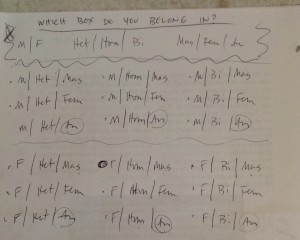 WHICH BOX DO YOU BELONG IN?
M/F Het/Hom/Bi Mas/Fem/An
• M/Het/Mas • M/Hom/Mas • M/Bi/Mas
• M/Het/Fem • M/Hom/Fem • M/Bi/Fem
M/Het/An • M/Hom/An • M/Bi/An
• F/Het/Mas • F/Hom/Mas • F/Bi/Mas
• F/Het/Fem • F/Hom/Fem • F/Bi/Fem
• F/Het/An • F/Hom/An • F/Bi/An